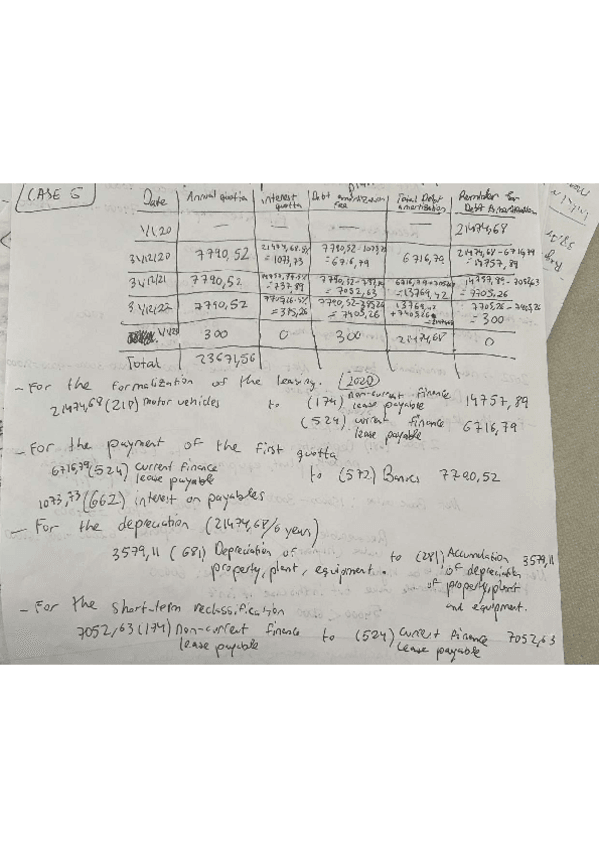 CASE 5
Date Annual quotta interest quotta Debt amortization fee Total Debt amortization Reminder for Debt Amortization
1/1/20 — — — — 21474,68
31/12/20 7790,52 21474,68·5% = 1073,73 7790,52-1073,73 = 6716,79 6716,79 21474,68-6716,79 = 14757,89
31/12/21 7790,52 14757,89·5% = 737,89 = 7052,63 = 13769,42 14757,89-7052,63 = 7705,26
31/12/22 7790,52 7705,26·5% = 385,26 7790,52-385,26 = 7405,26 = 300
1/1/23 300 0 300 21474,68 0
Total 23671,56
- For the formalization of the leasing. (2020)
21474,68 (218) motor vehicles to (174) non-current finance lease payable 14757,89
(524) current finance lease payable 6716,79
- For the payment of the first quotta
6716,79 (524) current finance lease payable to (572) Banks 7790,52
1073,73 (662) interest on payables
- For the depreciation (21474,68/6 years)
3579,11 (681) Depreciation of property, plant, equipment. to (281) Accumulation of depreciation of property, plant and equipment. 3579,11
- For the short-term reclassification
7052,63 (174) non-current finance lease payable to (524) current finance lease payable 7052,63